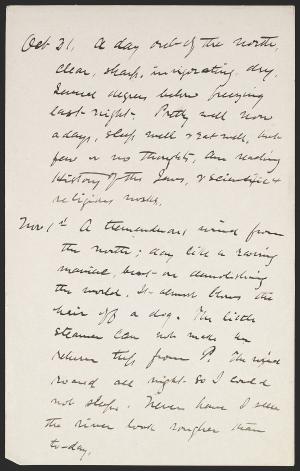 Oct 21. A day out of the north,
clear, sharp, invigorating, dry.
Several degrees below freezing
last night. Pretty well now
adays, sleep well & eat well, but
few or no thoughts, am reading
History of the Jews, & scientific &
religious works.
Nov 1st A tremendous wind from
the north; day like a raving
maniac, bent on demolishing
the world. It almost blows the
hair off a dog. The little
steamer can not make her
return trip from P. The wind
roared all night so I could
not sleep. Never have I seen
the river look rougher than
to-day.